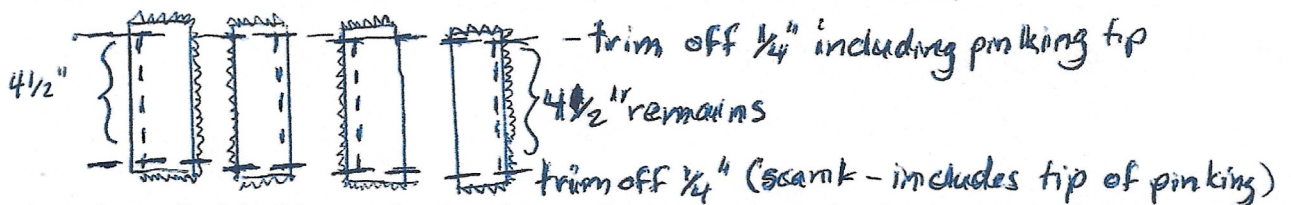 - trim off 1/4" including pinking tip
4 1/2"
4 1/2" remains
trim off 1/4" (scant - includes tip of pinking)